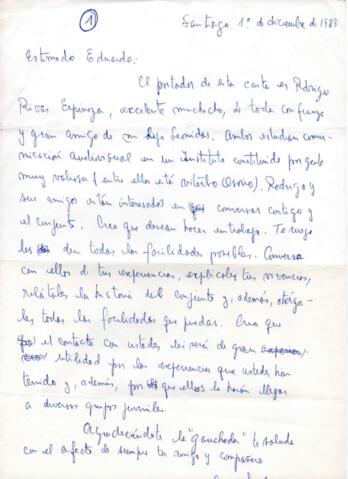 1
Santiago 1º de diciembre de 1983
Estimado Eduardo:
El portador de esta carta es Rodrigo
Rivas Espinoza, excelente muchacho, de toda confianza
y gran amigo de mi hijo Leonidas. Ambos estudian comu-
nicación audiovisual en un instituto constituido por gente
muy valiosa (entre ellos está Viterbo Osorio). Rodrigo y
sus amigos están interesados en conversar contigo y
el conjunto. Creo que desean hacer un trabajo. Te ruego
les den todas las facilidades posibles. Conversa
con ellos de tus experiencias, explícales tus vivencias,
relátales la historia del conjunto y, además, otórga-
les todas las facilidades que puedas. Creo que
el contacto con ustedes les será de gran
utilidad por las experiencias que ustedes han
tenido y, además, por que ellos lo harán llegar
a diversos grupos juveniles.
Agradeciéndote la "gauchada" te saluda
con el afecto de siempre tu amigo y compañero